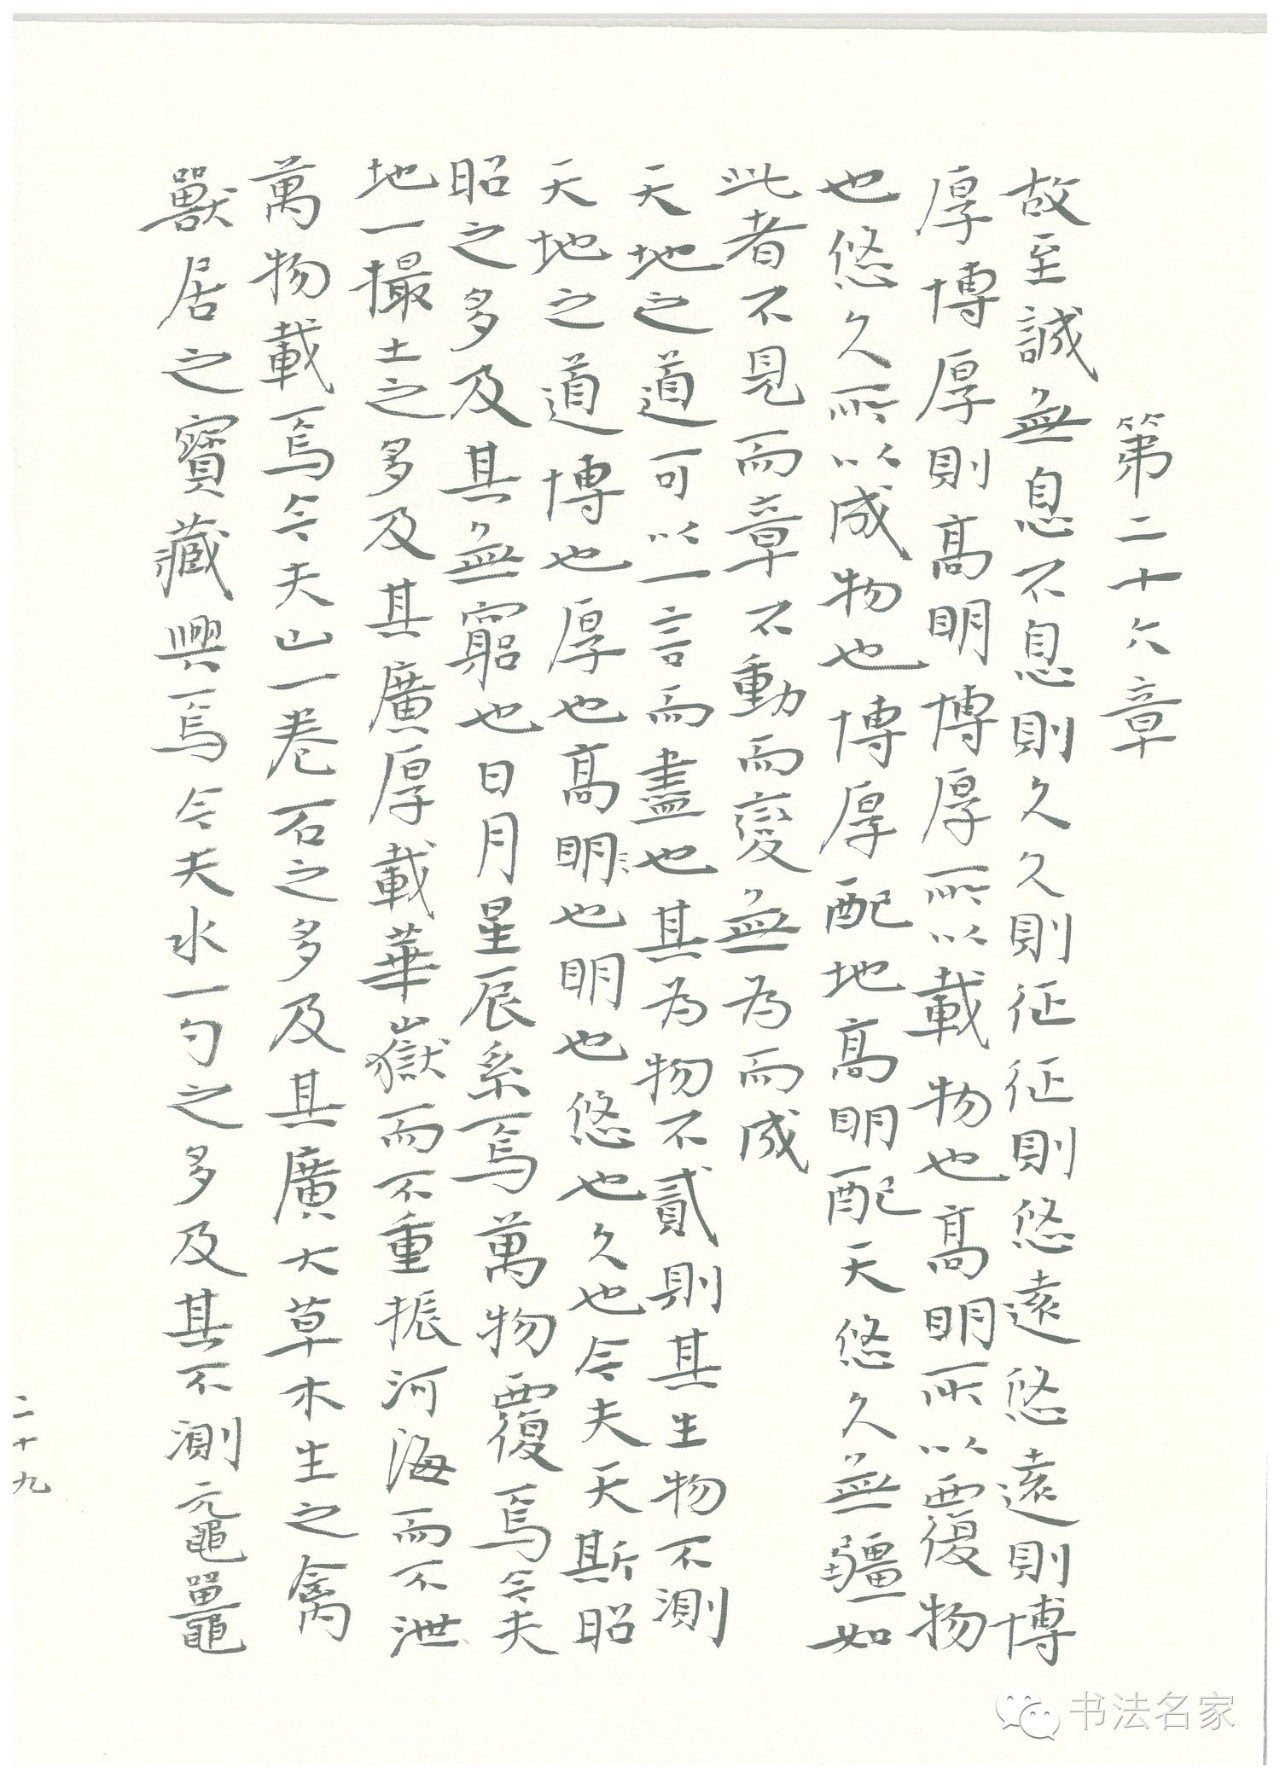 第二十六章
故至誠無息不息則久久則征征則悠遠悠遠則博
厚博厚則高明博厚所以載物也高明所以覆物
也悠久所以成物也博厚配地高明配天悠久無疆如
此者不見而章不動而變無為而成
天地之道可以一言而盡也其為物不貳則其生物不測
天地之道博也厚也高明也明也悠也久也今夫天斯昭
昭之多及其無窮也日月星辰系焉萬物覆焉今夫
地一撮土之多及其廣厚載華嶽而不重振河海而不泄
萬物載焉今夫山一卷石之多及其廣大草木生之禽
獸居之寶藏興焉今夫水一勺之多及其不測黿鼉
二十九
书法名家